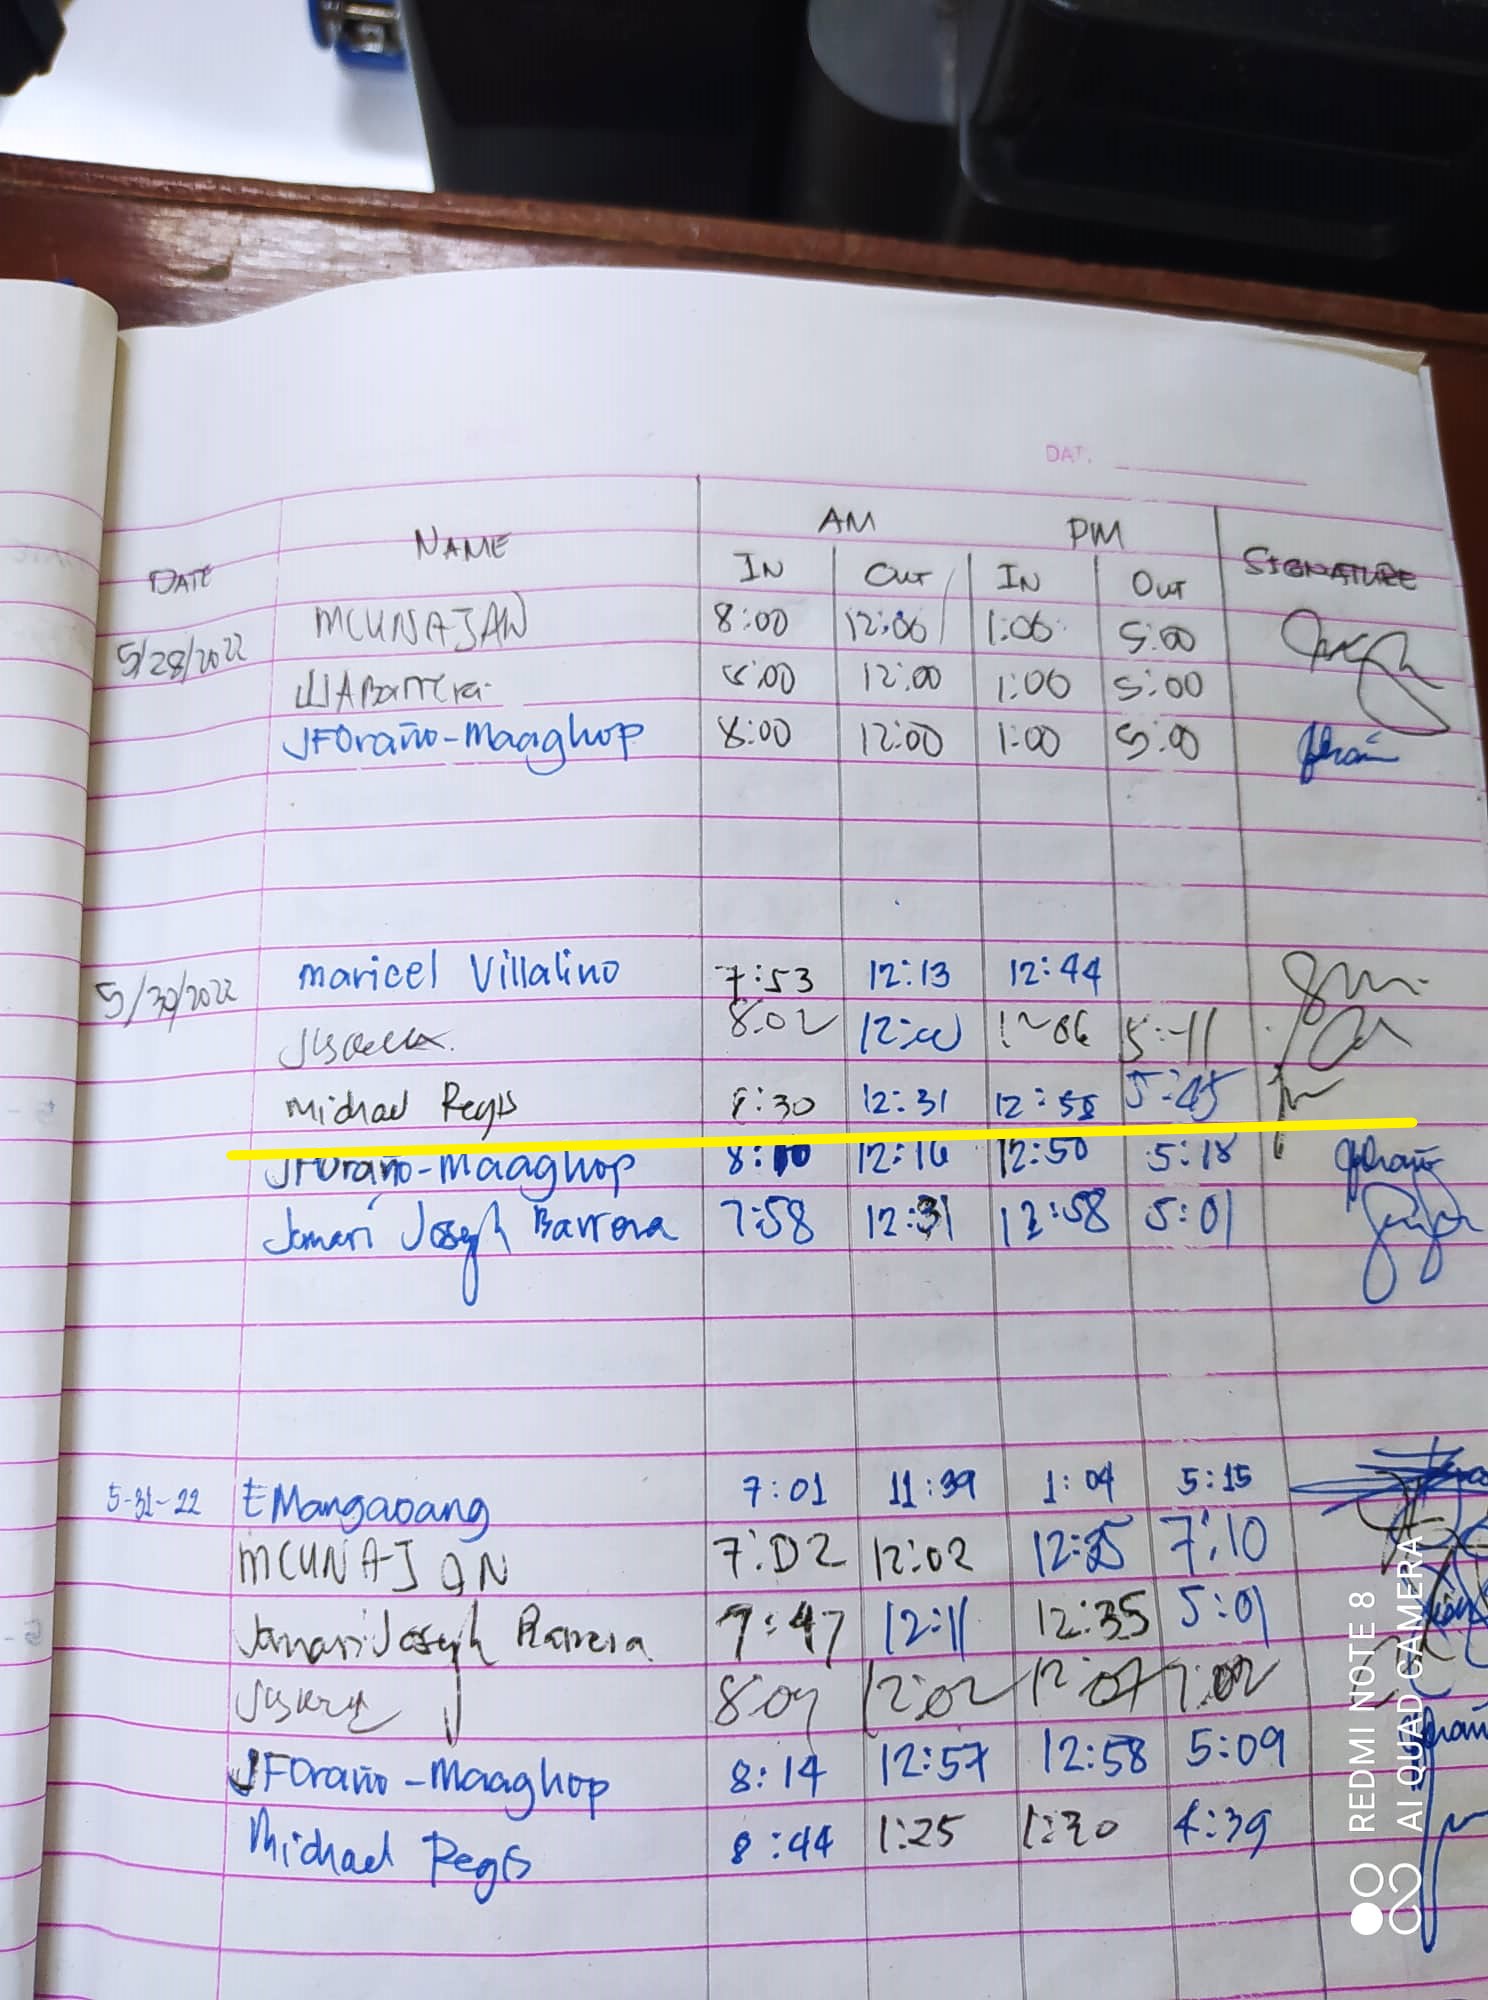 DAT.
DATE NAME AM PM SIGNATURE
IN OUT IN OUT
5/28/2022 MCUNAJAN 8:00 12:00 1:00 5:00
8:00 12:00 1:00 5:00
JFOraño-Maaghop 8:00 12:00 1:00 5:00
5/30/2022 Maricel Villalino 7:53 12:13 12:44
8:02 12:00 5:11
Michael Regis 8:30 12:31 12:58 5:45
JFOraño-Maaghop 8:10 12:16 12:50 5:18
Jamari Joseph Barrera 7:58 12:31 12:58 5:01
5-31-22 EMangaoang 7:01 11:39 1:04 5:15
MCUNAJAN 7:02 12:02 12:25 7:10
Jamari Joseph Barrera 7:47 12:11 12:35 5:01
8:09 12:02 12:07
JFOraño-Maaghop 8:14 12:57 12:58 5:09
Michael Regis 8:44 1:25 1:30 4:39
REDMI NOTE 8
AI QUAD CAMERA